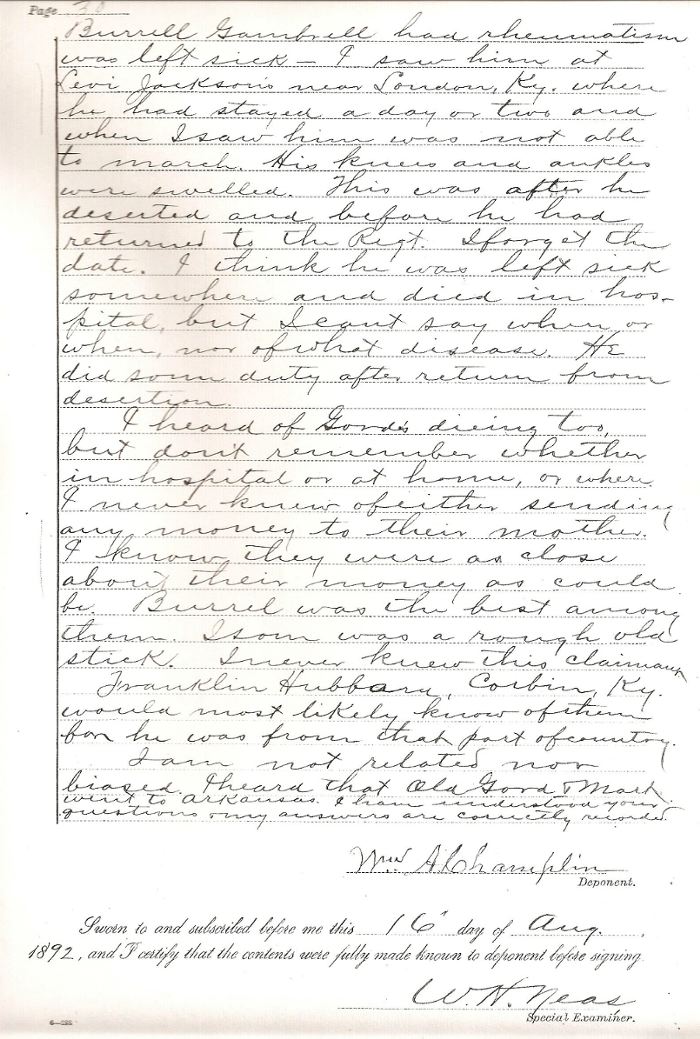 Page 30
Burrell Gambrell had rheumatism
was left sick — I saw him at
Levi Jacksons near London, Ky. where
he had stayed a day or two and
when I saw him was not able
to march. His knees and ankles
were swelled. This was after he
deserted and before he had
returned to the Regt. I forget the
date. I think he was left sick
somewhere and died in hos-
pital, but I cant say when or
where, nor of what disease. He
did some duty after return from
desertion.
I heard of Gords dieing too,
but don't remember whether
in hospital or at home, or where
I never knew of either sending
any money to their mother.
I know they were as close
about their money as could
be. Burrel was the best among
them. Isom was a rough old
stick. I never knew this claimant
Franklin Hubbard, Corbin, Ky.
would most likely know of them
for he was from that part of country.
I am not related nor
biased. I heard that Old Gord & Mark
went to Arkansas. I have understood your
questions & my answers are correctly recorded
Wm A Champlin
Deponent.
Sworn to and subscribed before me this 16" day of Aug.,
1892, and I certify that the contents were fully made known to deponent before signing.
W. H. Neas
Special Examiner.